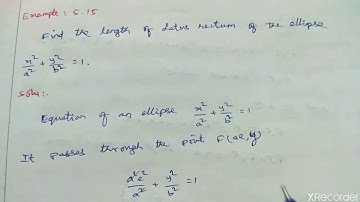 Example: 5.15
Find the length of Latus rectum of the ellipse
x²/a² + y²/b² = 1.
Soln:.
Equation of an ellipse x²/a² + y²/b² = 1
It passes through the point F(ae, y)
a²e²/a² + y²/b² = 1
XRecorder